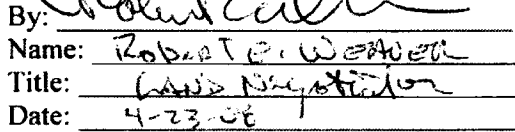 By:
Name: ROBERT E. WEAVER
Title: LAND Negotiator
Date: 4-23-08